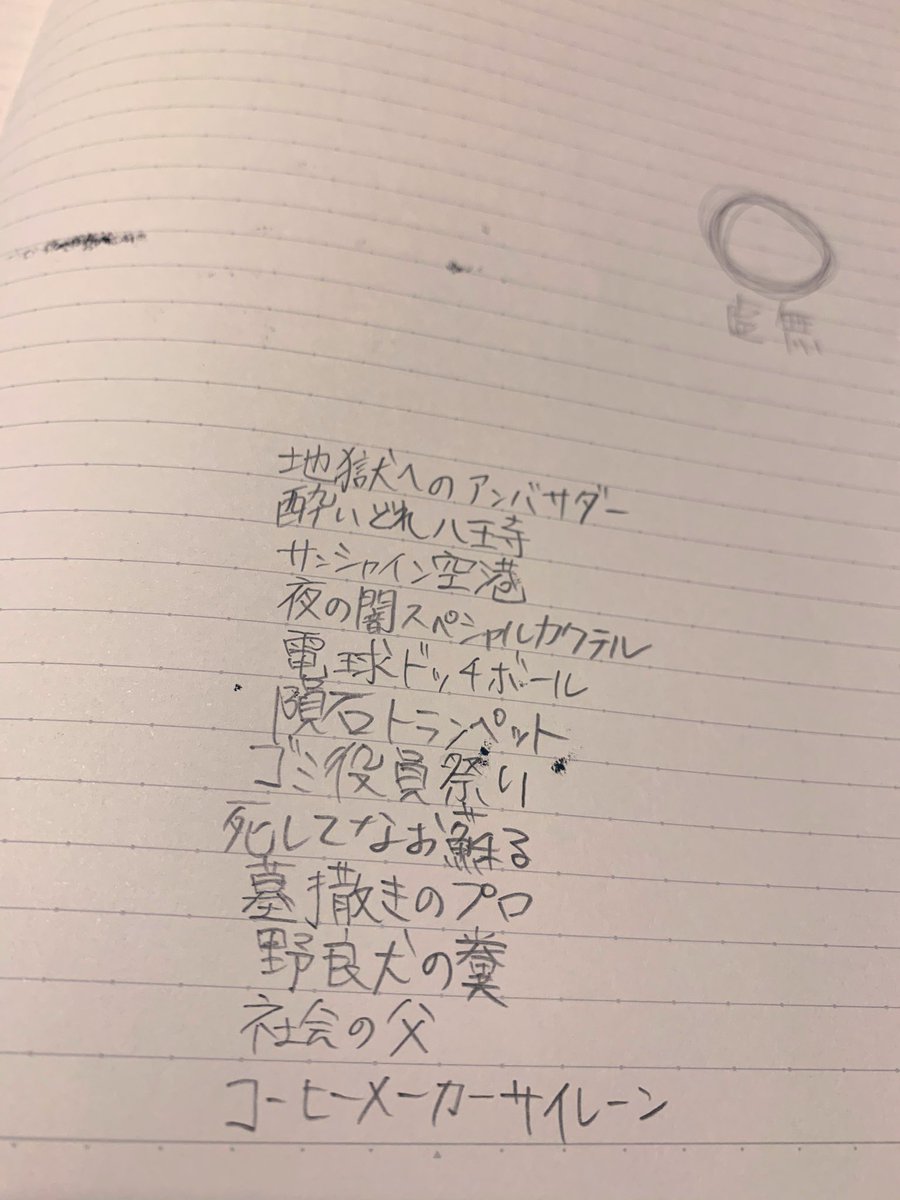 虚無
地獄へのアンバサダー
酔いどれ八王子
サンシャイン空港
夜の闇スペシャルカクテル
電球ドッチボール
隕石トランペット
ゴミ役員祭り
死してなお蘇る
墓撒きのプロ
野良犬の糞
社会の父
コーヒーメーカーサイレーン